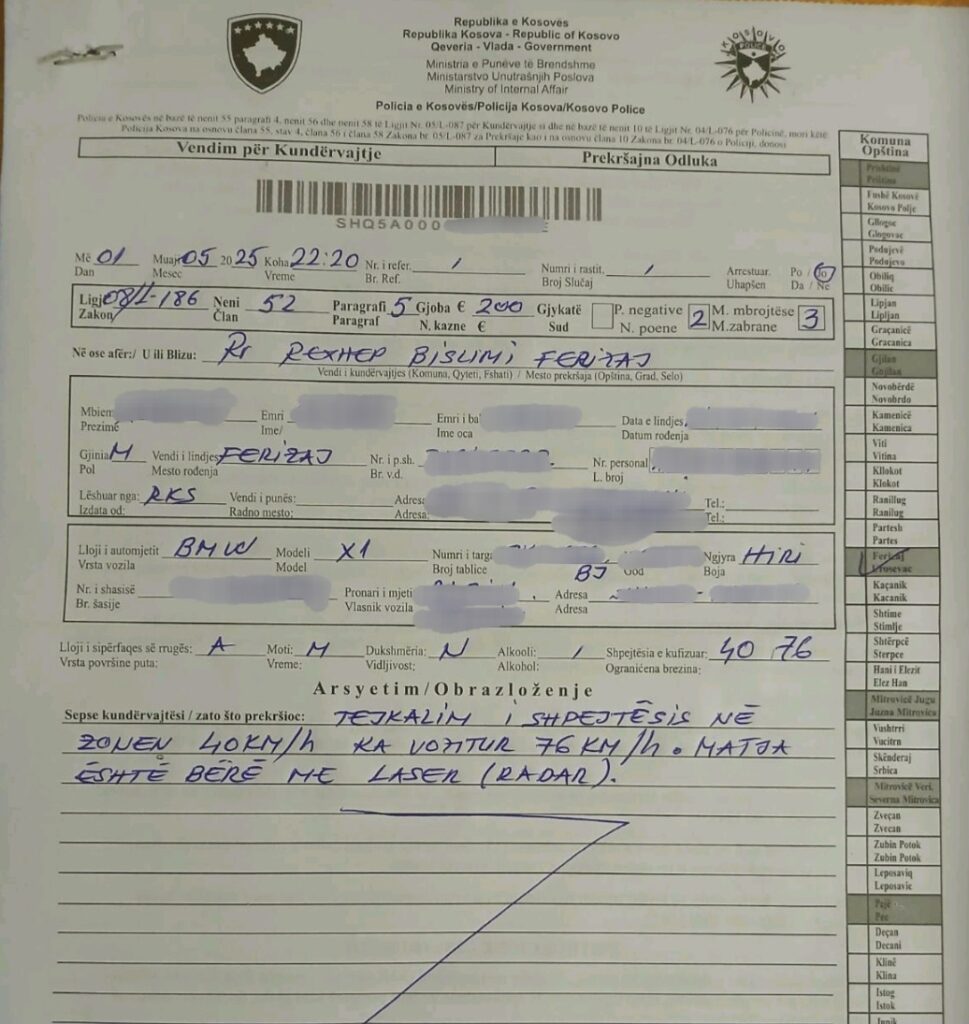 Republika e Kosovës
Republika Kosova - Republic of Kosovo
Qeveria - Vlada - Government
Ministria e Punëve të Brendshme
Ministarstvo Unutrašnjih Poslova
Ministry of Internal Affair
Policia e Kosovës/Policija Kosova/Kosovo Police
KOSOVO
POLICE
Policia e Kosovës në bazë të nenit 55 paragrafi 4, nenit 56 dhe nenit 58 të Ligjit Nr. 05/L-087 për Kundërvajtje si dhe në bazë të nenit 10 të Ligjit Nr. 04/L-076 për Policinë, mori këtë
Policija Kosova na osnovu člana 55, stav 4, člana 56 i člana 58 Zakona br. 05/L-087 za Prekršaje kao i na osnovu člana 10 Zakona br. 04/L-076 o Policiji, donosi
Vendim për Kundërvajtje Prekršajna Odluka
SHQ5A000
Më 01 Muaj 05 2025 Koha 22:20 Nr. i refer. / Numri i rastit. / Arrestuar. Po / Jo
Dan Mesec Vreme Br. Ref. Broj Slučaj Uhapšen Da / Ne
Ligj 08/L-186 Neni 52 Paragrafi 5 Gjoba € 200 Gjykatë P. negative 2 M. mbrojtëse 3
Zakon Član Paragraf N. kazne € Sud N. poene M.zabrane
Në ose afër:/ U ili Blizu: Rr REXHEP BISLIMI FERIZAJ
Vendi i kundërvajtjes (Komuna, Qyteti, Fshati) / Mesto prekršaja (Opština, Grad, Selo)
Mbiem Emri Emri i ba Data e lindjes
Prezime Ime/ Ime oca Datum rođenja
Gjinia M Vendi i lindjes FERIZAJ Nr. i p.sh. Nr. personal
Pol Mesto rođenja Br. v.d. L. broj
Lëshuar nga: RKS Vendi i punës: Adresa Tel.:
Izdata od: Radno mesto: Adresa: Tel.:
Lloji i automjetit BMW Modeli X1 Numri i targa Ngjyra HIRI
Vrsta vozila Model Broj tablice BJ Boja
Nr. i shasisë Pronari i mjeti Adresa
Br. šasije Vlasnik vozila Adresa
Lloji i sipërfaqes së rrugës: A Moti: M Dukshmëria: N Alkooli: / Shpejtësia e kufizuar: 40 76
Vrsta površine puta: Vreme: Vidljivost: Alkohol: Ograničena brezina:
Arsyetim/Obrazloženje
Sepse kundërvajtësi / zato što prekršioc: TEJKALIM I SHPEJTËSIS NË
ZONEN 40KM/h KA VOZITUR 76 KM/h. MATJA
ËSHTË BËRË ME LASER (RADAR).
Komuna
Opština
Prishtinë
Priština
Fushë Kosovë
Kosovo Polje
Gllogoc
Glogovac
Podujevë
Podujevo
Obiliq
Obilic
Lipjan
Lipljan
Graçanicë
Gracanica
Gjilan
Gnjilan
Novobërdë
Novobrdo
Kamenicë
Kamenica
Viti
Vitina
Kllokot
Klokot
Ranillug
Ranilug
Partesh
Partes
Ferizaj
Urosevac
Kaçanik
Kacanik
Shtime
Stimlje
Shtërpcë
Sterpce
Hani i Elezit
Elez Han
Mitrovicë Jugu
Juzna Mitrovica
Vushtrri
Vucitrn
Skënderaj
Srbica
Mitrovicë Veri.
Severna Mitrovica
Zveçan
Zvecan
Zubin Potok
Zubin Potok
Leposaviq
Leposavic
Pejë
Pec
Deçan
Decani
Klinë
Klina
Istog
Istok
Junik